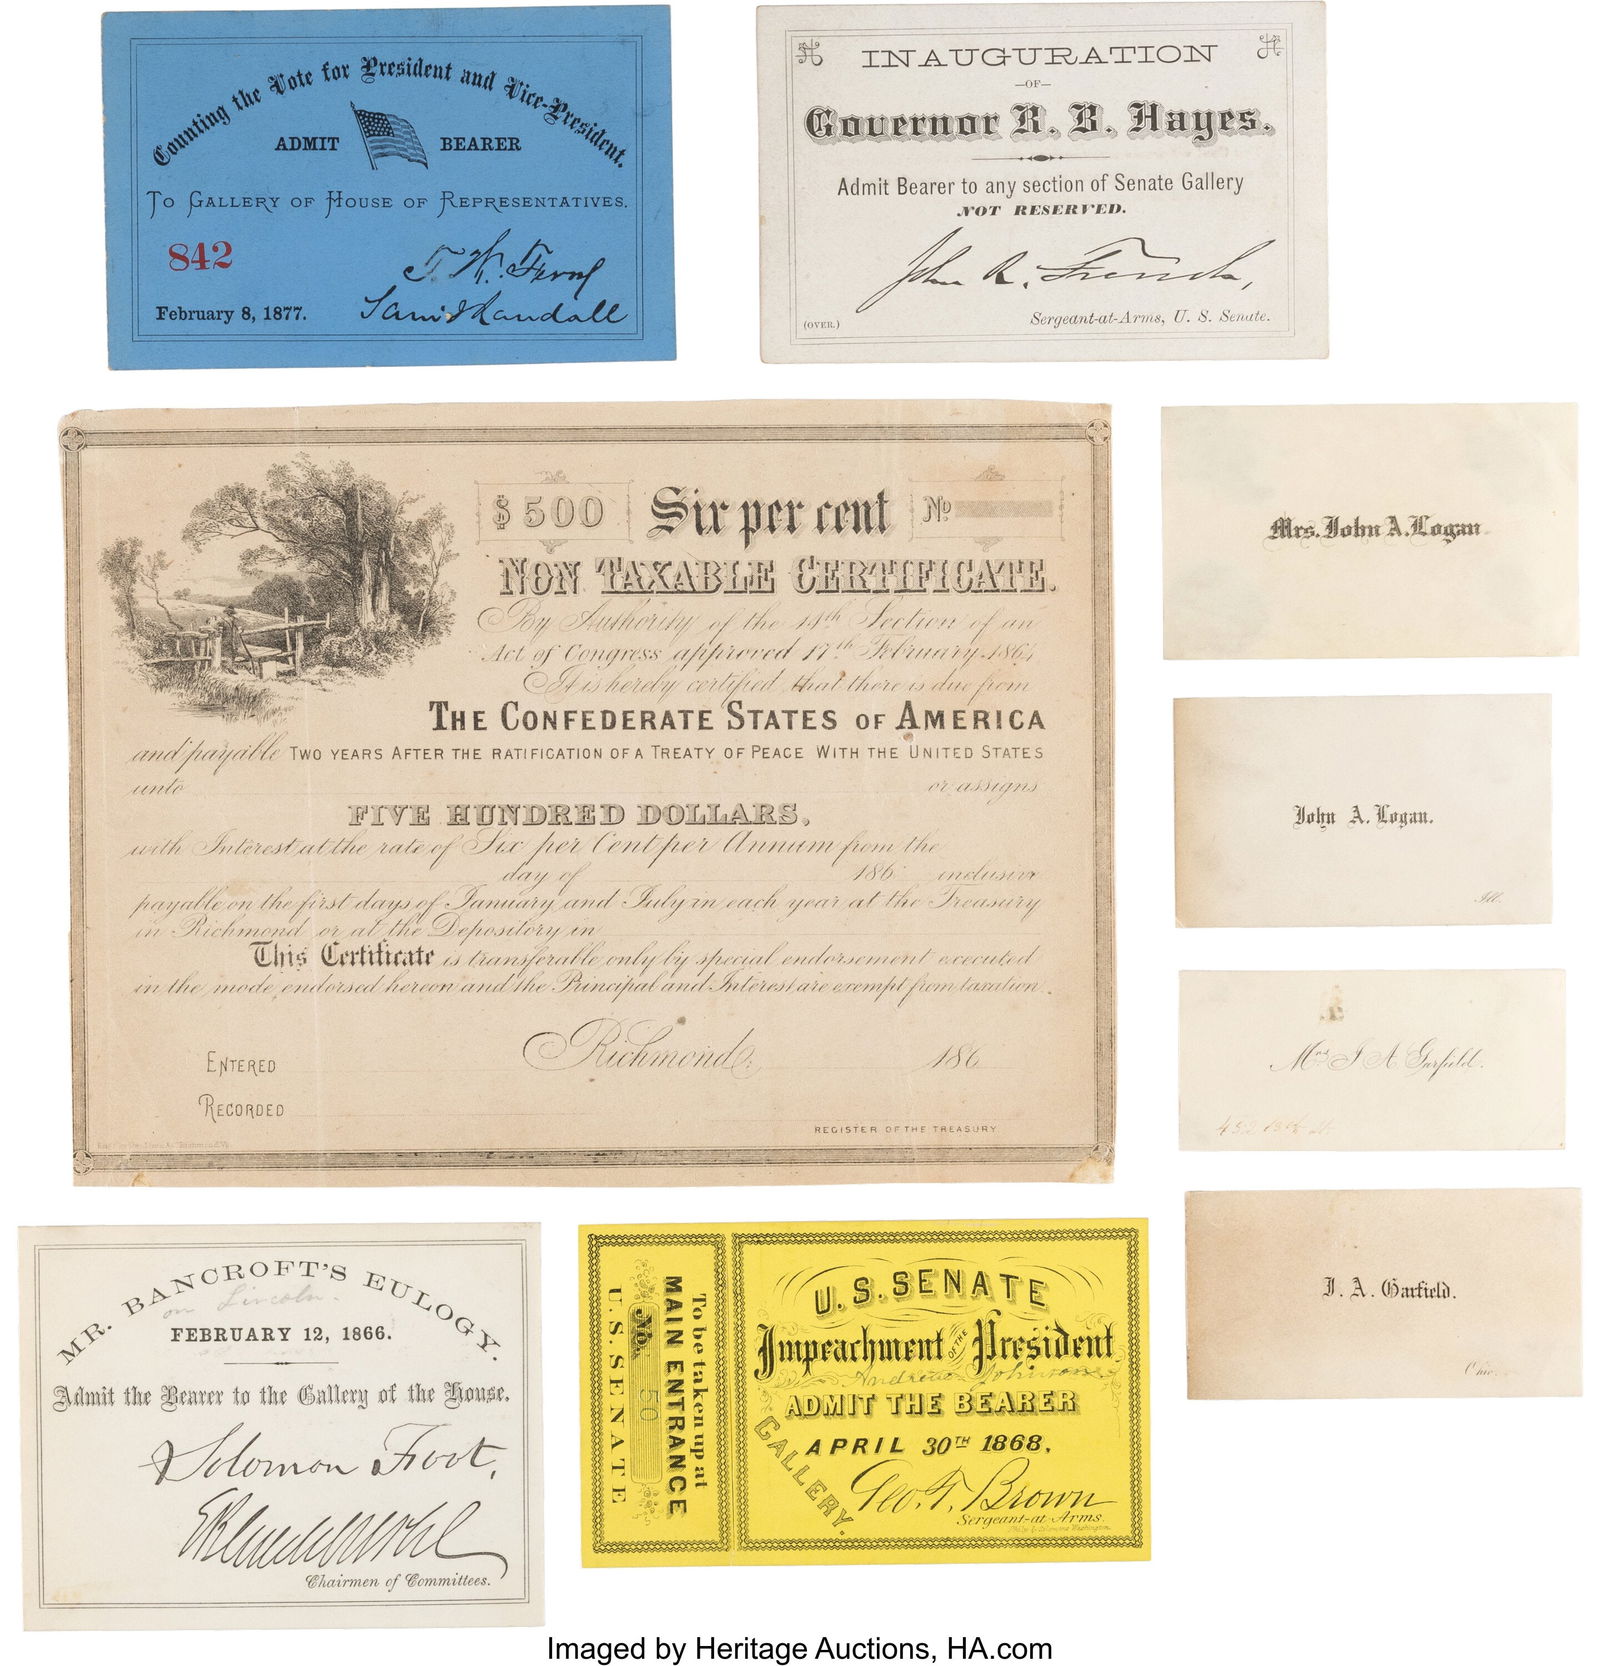 Counting the Vote for President and Vice-President.
ADMIT BEARER
TO GALLERY OF HOUSE OF REPRESENTATIVES.
842
February 8, 1877.
Sam J Randall
INAUGURATION
—OF—
Governor R. B. Hayes.
Admit Bearer to any section of Senate Gallery
NOT RESERVED.
John R. French,
(OVER.)
Sergeant-at-Arms, U. S. Senate.
$500 Six per cent No
NON TAXABLE CERTIFICATE.
By Authority of the 14th Section of an
Act of Congress approved 17th February 1864
It is hereby certified that there is due from
THE CONFEDERATE STATES OF AMERICA
and payable TWO YEARS AFTER THE RATIFICATION OF A TREATY OF PEACE WITH THE UNITED STATES
unto or assigns
FIVE HUNDRED DOLLARS,
with Interest at the rate of Six per Cent per Annum from the
day of 186 inclusive
payable on the first days of January and July in each year at the Treasury
in Richmond or at the Depository in
This Certificate is transferable only by special endorsement executed
in the mode endorsed hereon and the Principal and Interest are exempt from taxation.
Richmond, 186
ENTERED
RECORDED
REGISTER OF THE TREASURY
Mrs. John A. Logan
John A. Logan.
Ill.
Mrs J A Garfield.
452 13th St
J. A. Garfield.
Ohio.
MR. BANCROFT'S EULOGY.
on Lincoln.
FEBRUARY 12, 1866.
Admit the Bearer to the Gallery of the House.
Solomon Foot,
Chairmen of Committees.
To be taken up at
MAIN ENTRANCE
No. 50
U.S. SENATE
U.S. SENATE
Impeachment OF THE President
Andrew Johnson
ADMIT THE BEARER
GALLERY.
APRIL 30TH 1868.
Geo. T. Brown
Sergeant-at-Arms.
Imaged by Heritage Auctions, HA.com